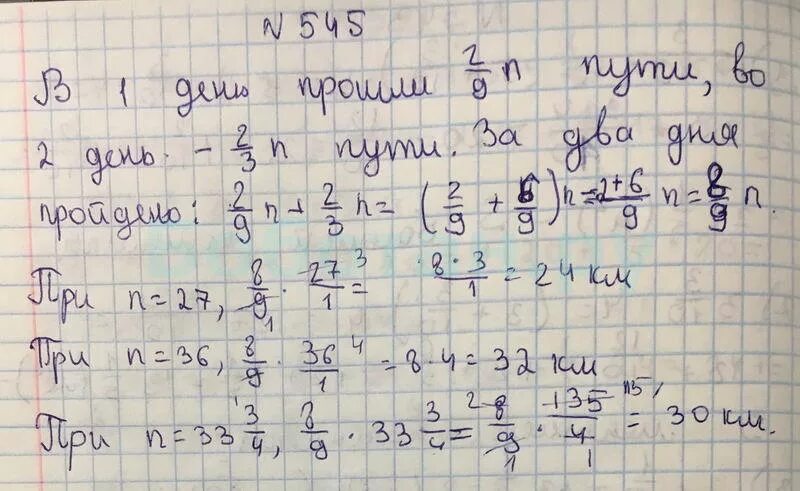 N 545
В 1 день прошли 2/9 n пути, во
2 день - 2/3 n пути. За два дня
пройдено: 2/9 n + 2/3 n = (2/9 + 6/9) n = 2+6/9 n = 8/9 n.
При n = 27, 8/9 1 · 27/1 3 = 8 · 3/1 = 24 км
При n = 36, 8/9 · 36/1 4 = 8 · 4 = 32 км
При n = 33 3/4, 8/9 · 33 3/4 = 2 8/9 1 · 135/4 1 15 = 30 км.